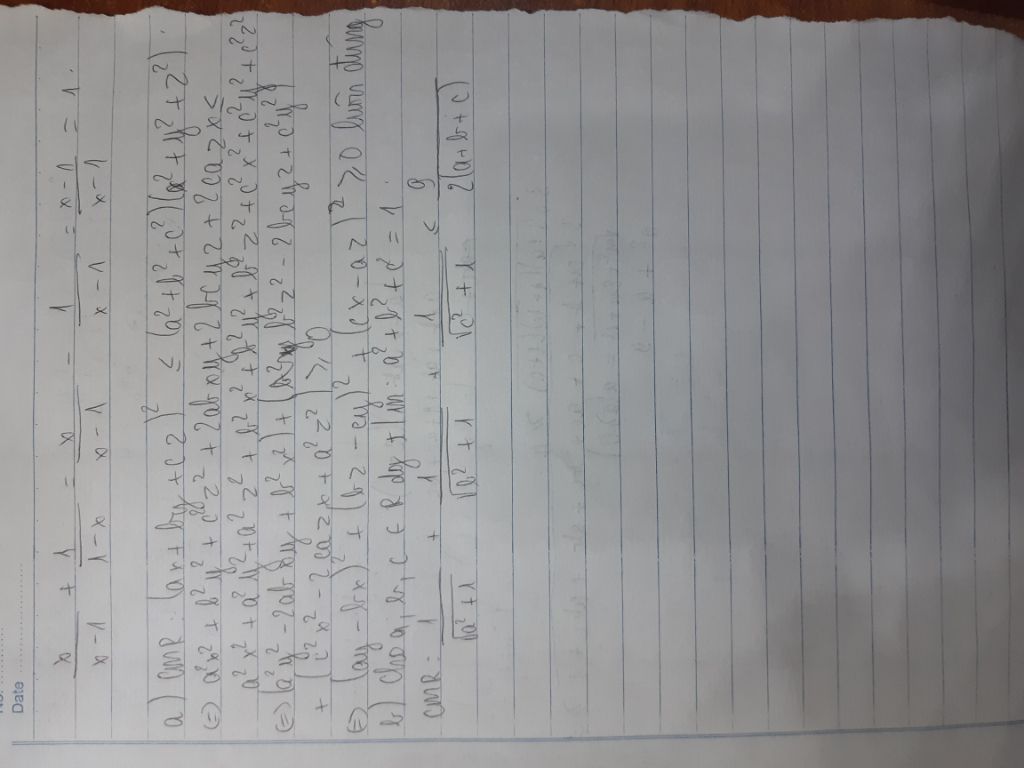 No:
Date
x/(x-1) + 1/(1-x) = x/(x-1) - 1/(x-1) = (x-1)/(x-1) = 1.
a) CMR: (ax+by+cz)² ≤ (a²+b²+c²)(x²+y²+z²).
(=) a²x² + b²y² + c²z² + 2abxy + 2bcyz + 2cazx ≤
a²x² + a²y² + a²z² + b²x² + b²y² + b²z² + c²x² + c²y² + c²z²
(=) (a²y² - 2abxy + b²x²) + (b²z² - 2bcyz + c²y²)
+ (c²x² - 2cazx + a²z²) ≥ 0
(=) (ay - bx)² + (bz - cy)² + (cx - az)² ≥ 0 luôn đúng
b) cho a, b, c ∈ R dg t/m: a² + b² + c² = 1.
CMR: 1/√(a²+1) + 1/√(b²+1) + 1/√(c²+1) < 9/(2(a+b+c))